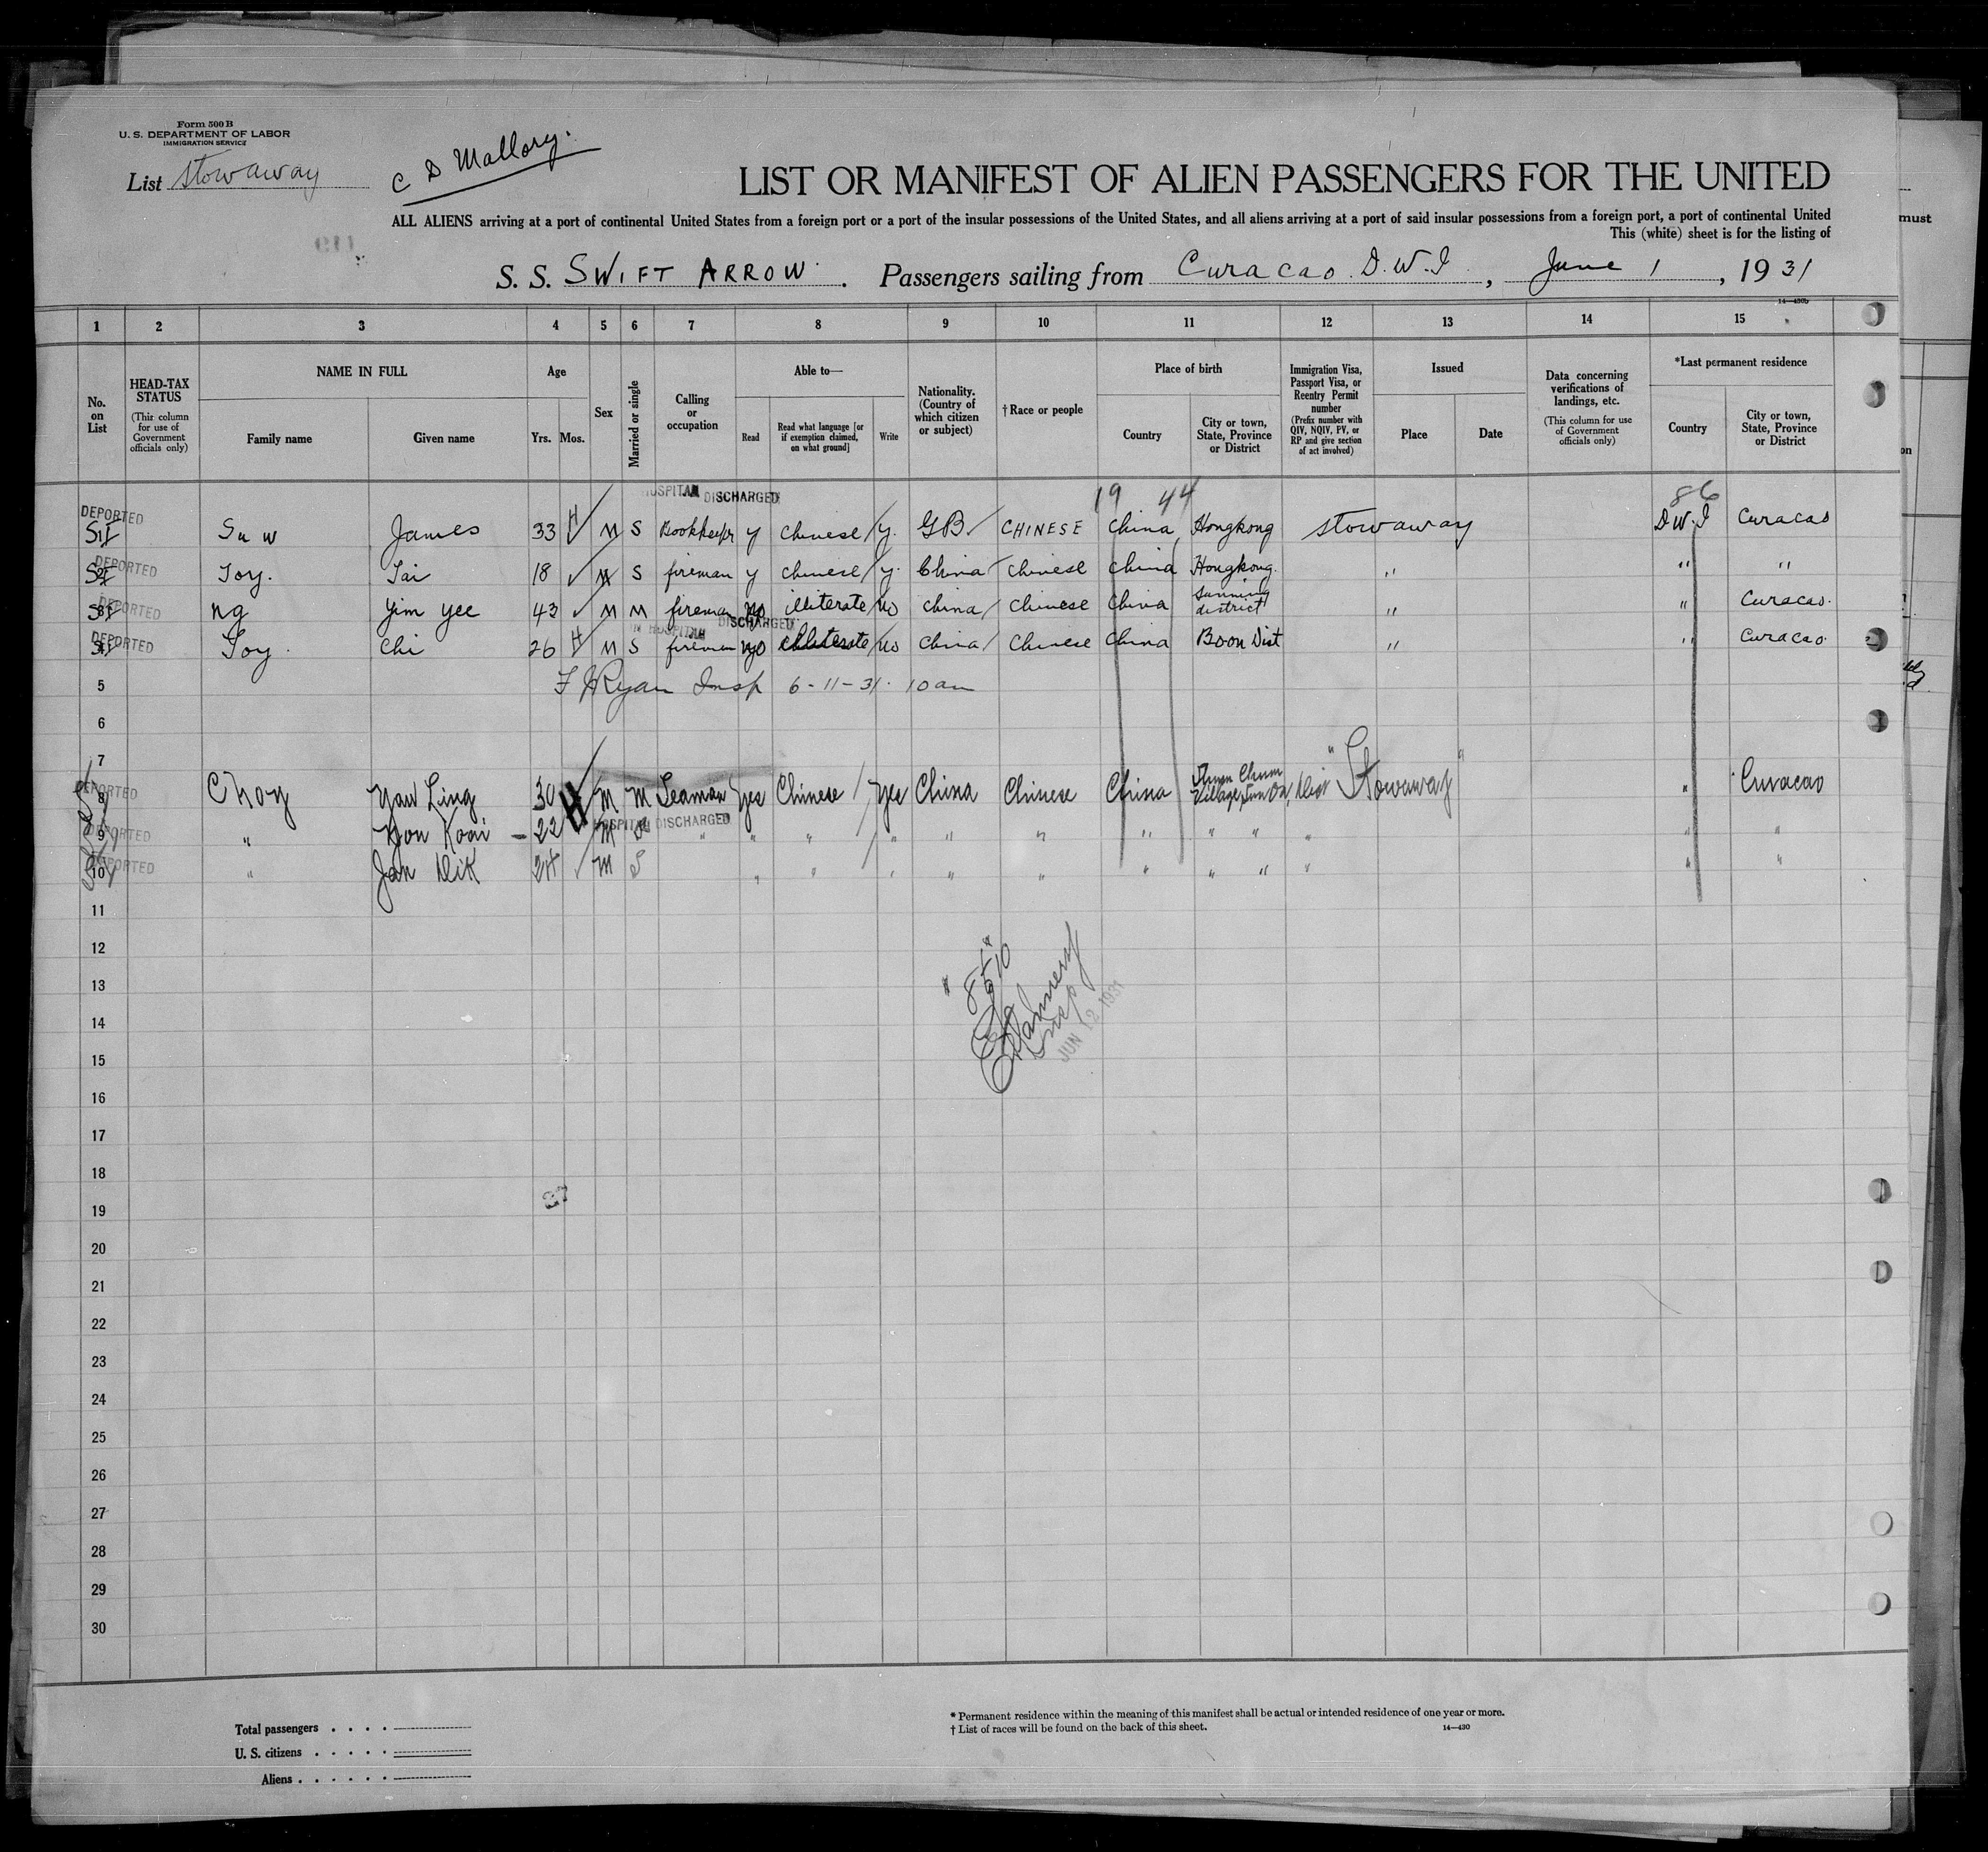 Form 500 B
U. S. DEPARTMENT OF LABOR
IMMIGRATION SERVICE
List Stowaway
C D Mallory.
LIST OR MANIFEST OF ALIEN PASSENGERS FOR THE UNITED
ALL ALIENS arriving at a port of continental United States from a foreign port or a port of the insular possessions of the United States, and all aliens arriving at a port of said insular possessions from a foreign port, a port of continental United
This (white) sheet is for the listing of
must
S. S. SWIFT ARROW. Passengers sailing from Curacao D.W.I, June 1, 1931
14—430b
1 2 3 4 5 6 7 8 9 10 11 12 13 14 15
No. on List
HEAD-TAX STATUS (This column for use of Government officials only)
NAME IN FULL
Family name Given name
Age
Yrs. Mos.
Sex
Married or single
Calling or occupation
Able to—
Read
Read what language [or if exemption claimed, on what ground]
Write
Nationality. (Country of which citizen or subject)
† Race or people
Place of birth
Country
City or town, State, Province or District
Immigration Visa, Passport Visa, or Reentry Permit number (Prefix number with QIV, NQIV, PV, or RP and give section of act involved)
Issued
Place Date
Data concerning verifications of landings, etc. (This column for use of Government officials only)
*Last permanent residence
Country
City or town, State, Province or District
HOSPITAL DISCHARGED 19 44 86
DEPORTED Suw James 33 H M S Bookkeeper y Chinese y. GB CHINESE China Hongkong Stowaway D.W.I Curacao
DEPORTED Toy. Tai 18 M S fireman y Chinese y. China Chinese China Hongkong. " " "
DEPORTED Ng Yim Yee 43 M M fireman no illiterate no China Chinese China Sunning district " " Curacao.
IN HOSPITAL DISCHARGED
DEPORTED Toy. Chi 26 H M S fireman no illiterate no China Chinese China Boon Dist " " Curacao.
5 F J Ryan Insp 6-11-31. 10 am
6
7
DEPORTED 8 Choy Yaw Ling 30 H M M Seaman Yes Chinese Yes China Chinese China Village, Sun On, Dist "Stowaway" " Curacao
HOSPITAL DISCHARGED
DEPORTED 9 " Don Kooi 22 M " " " " " " " " " " " "
DEPORTED 10 " Jan Dik 24 M S " " " " " " " " " " "
11
12
13
" 8 to 10 "
14
Insp
JUN 12 1931
15
16
17
18
27
19
20
21
22
23
24
25
26
27
28
29
30
Total passengers . . . .
U. S. citizens . . . . .
Aliens . . . . . .
* Permanent residence within the meaning of this manifest shall be actual or intended residence of one year or more.
† List of races will be found on the back of this sheet.
14—430